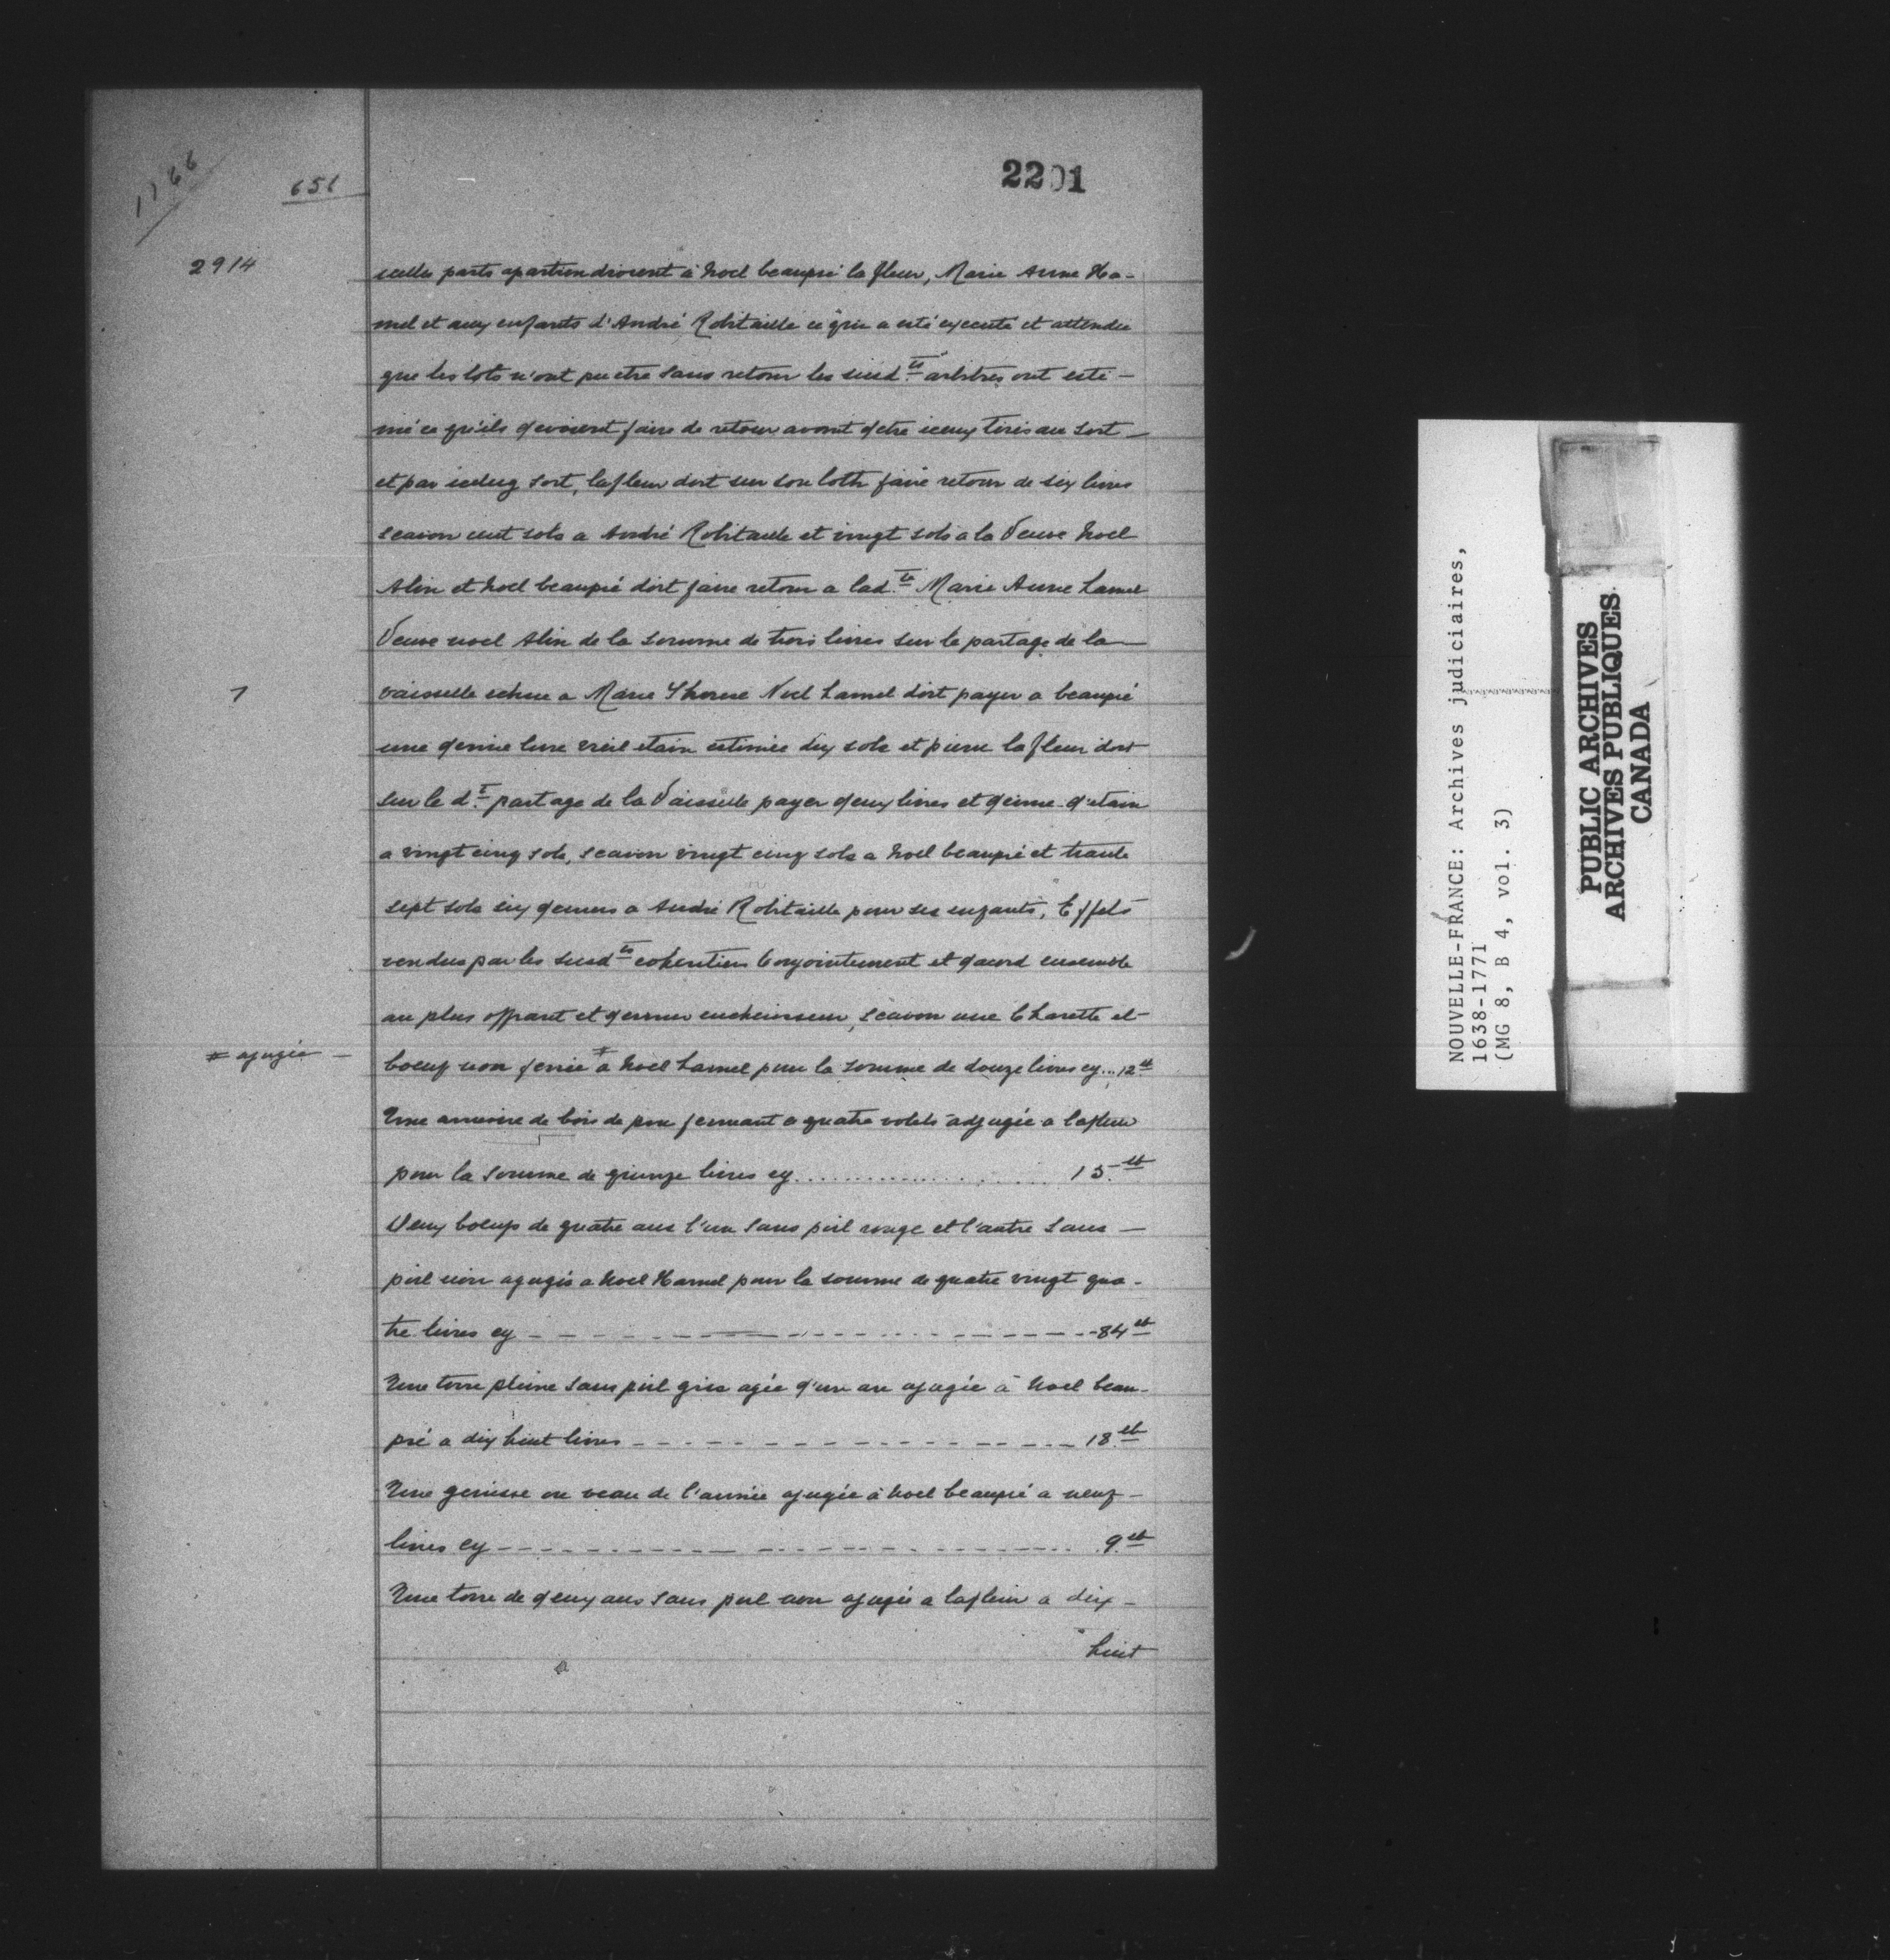 1766
651
2201
2914
icelles parts apartiendroient à Noel beaupré la fleur, Marie Anne Ha-
mel et aux enfants d'André Robitaille ce qui a esté executé et attendu
que les lots n'ont pu etre sans retour les susd.ts arbitres ont esti-
mé ce qu'ils devoient faire de retour avant d'etre iceux tirés au sort
et par iceluy sort, lafleur doit sur son loth faire retour de six livres
scavoir cent sols a André Robitaille et vingt sols a la Veuve Noel
Alin et Noel beaupré doit faire retour a lad.te Marie Anne hamel
Veuve noel Alin de la somme de trois livres sur le partage de la
7
vaisselle echue a Marie Therese Noel hamel doit payer a beaupré
une demie livre vieil etain estimée dix sols et pierre lafleur doit
sur le d.t partage de la Vaisselle payer deux livres et demie d'etain
a vingt cinq sols, scavoir vingt cinq sols a Noel beaupré et trante
sept sols six deniers a André Robitaille pour ses enfants, Effets
vendus par les susd.ts coheritiers Conjointement et dacord ensemble
au plus offrant et dernier encherisseur, scavoir une Charette et
# ajugée
boeuf non ferrée # a Noël hamel pour la somme de douze livres cy... 12 lt
Une armoire de bois de pin fermant a quatre volets adjugée a lafleur
pour la somme de quinze livres cy.................... 15. lt
Deux boeufs de quatre ans l'un sous poil rouge et l'autre sous
poil noir ajugés a Noel Hamel pour la somme de quatre vingt qua-
tre livres cy - - - - - - - - - - 84 lt
Une torre pleine sous poil gris agée d'un an ajugée à Noel beau-
pré a dix huit livres - - - - - - - - - - 18. lt
Une genisse ou veau de l'année ajugée à Noel beaupré a neuf
livres cy - - - - - - - - - - 9. lt
Une torre de deux ans sous poil noir ajugée a lafleur a dix-
huit
NOUVELLE-FRANCE: Archives judiciaires,
1638-1771
(MG 8, B 4, vol. 3)
PUBLIC ARCHIVES
ARCHIVES PUBLIQUES
CANADA